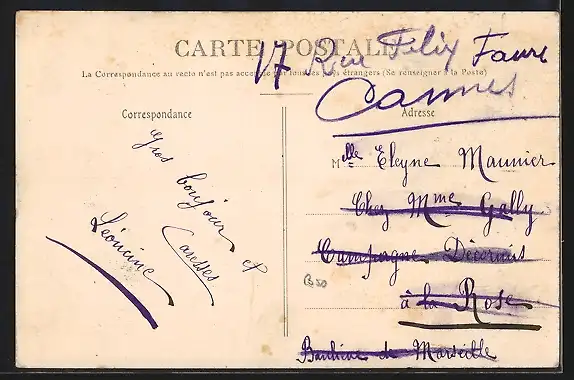 CARTE POSTALE
17 Rue Felix Faure
La Correspondance au recto n'est pas acceptée par tous les pays étrangers (Se renseigner à la Poste)
Cannes
Correspondance
Adresse
Gros bonjour et
Caresses
Léoncine
Mlle Eleyne Maunier
Chez Mme Gally
Campagne Décormis
à la Rose
Banlieue de Marseille